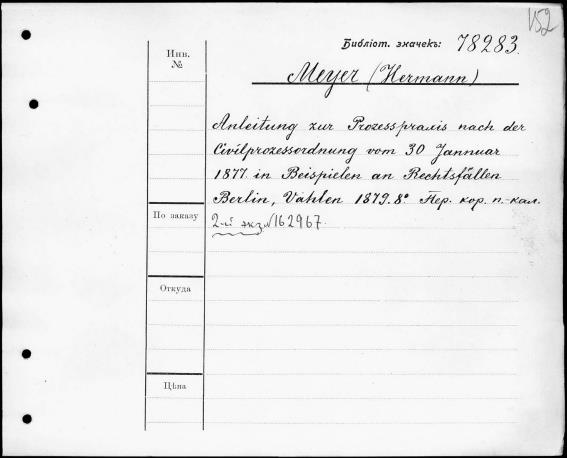 152
Библіот. значекъ: 78283.
Инв.
№
Meyer (Hermann)
Anleitung zur Prozesspraxis nach der
Civilprozessordnung vom 30 Jannuar
1877. in Beispielen an Rechtsfällen
Berlin, Vahlen 1879. 8° Пер. кор. п.-кал.
По заказу
2-й экз. №162967.
Откуда
Цѣна